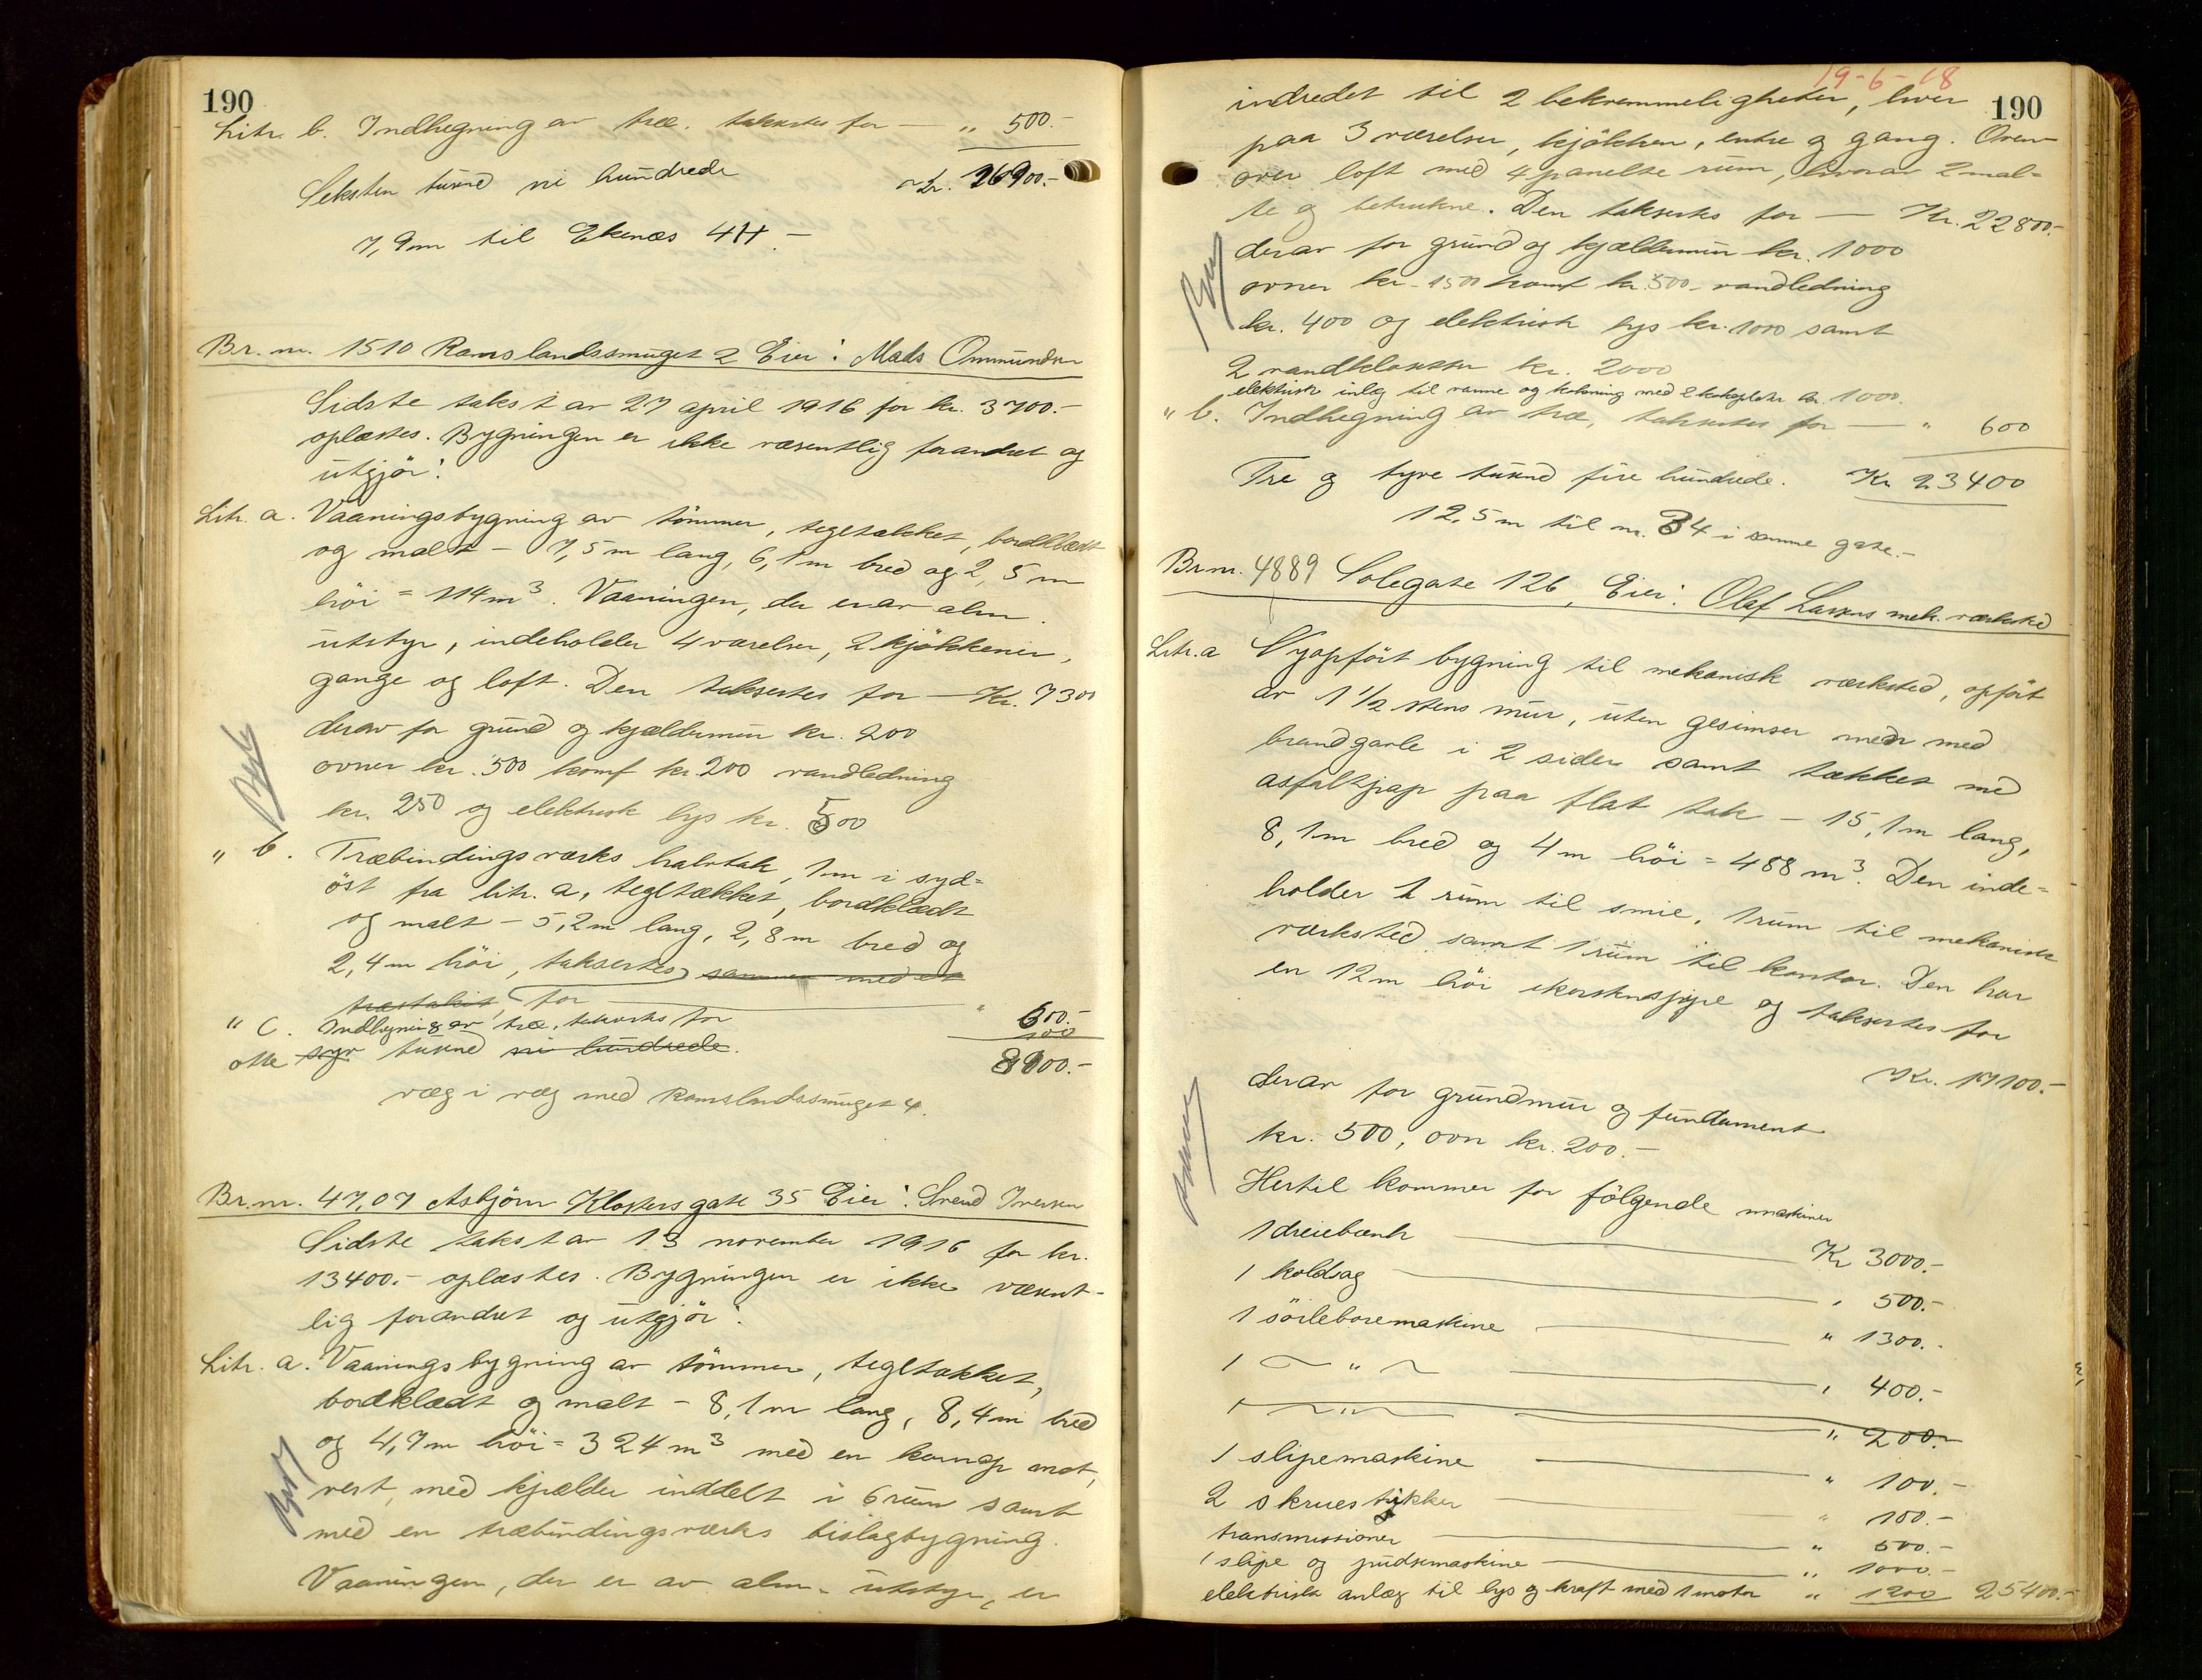 190
Litr. b. Indhegning av træ, taksertes for — „ 500.-
Seksten tusend ni hundrede Kr. 16900.-
7,9m til Ekenæs 44.-
Br. nr. 1510 Ramslandssmuget 2 Eier: Mads Ommundsen
Sidste takst av 27 april 1916 for kr. 3700.-
oplæstes. Bygningen er ikke væsentlig forandret og
utgjör:
Litr. a. Vaaningsbygning av tömmer, tegltækket, bordklædt
og malt - 7,5m lang, 6,1m bred og 2,5m
höi = 114m³. Vaaningen, der er av alm.
utstyr, indeholder 4 værelser, 2 kjökkener,
gange og loft. Den taksertes for — Kr. 7300
derav for grund og kjældermur kr. 200
ovner kr. 500 komf kr. 200 vandledning
kr. 250 og elektrisk lys kr. 500
„ b. Træbindingsverks halvtak, 1m i syd=
öst fra litr. a, tegltækket, bordklædt
og malt - 5,2m lang, 2,8m bred og
2,4m höi, taksertes sammen med et
træstakit, for — „ 600.-
„ C. Indhegning av træ, taksertes for 100
otte syv tusend ni hundrede. 8000.-
væg i væg med Ramslandssmuget 4.
Br. nr. 47,07 Asbjörn Klostersgate 35 Eier: Svend Iversen
Sidste takst av 13 november 1916 for kr.
13400.- oplæstes. Bygningen er ikke væsent-
lig forandret og utgjör:
Litr. a. Vaaningsbygning av tömmer, tegltækket,
bordklædt og malt - 8,1m lang, 8,4m bred
og 4,7m höi = 324m³ med en karnap mot
vest, med kjælder inddelt i 6 rum samt
med en træbindingsverks bislagbygning.
Vaaningen, der er av alm. utstyr, er
19-6-18
190
indredet til 2 bekvemmeligheter, hver
paa 3 værelser, kjökken, entre og gang. Oven-
over loft med 4 panelte rum, hvorav 2 mal=
te og betrukne. Den taksertes for — Kr. 22800.-
derav for grund og kjældermur kr. 1000
ovner kr. 1500 komf kr. 500 vandledning
kr. 400 og elektrisk lys kr. 1000 samt
2 vandklosetter kr. 2000
elektrisk inlæg til varme og kokning med 2 kokeplater kr. 1000.
„ b. Indhegning av træ, taksertes for — „ 600
Tre og tyve tusend fire hundrede. Kr 23400
12,5m til nr. 34 i samme gate.-
Br. nr. 4889 Solegate 126, Eier: Olaf Larsens mek. værksted
Litr. a Nyopfört bygning til mekanisk værksted, opfört
av 1 1/2 stens mur, uten gesimser men med
brandgavle i 2 sider samt tækket med
asfaltpap paa flat tak - 15,1m lang,
8,1m bred og 4m höi = 488m³. Den inde=
holder 1 rum til smie, 1 rum til mekanisk
værksted samt 1 rum til kontor. Den har
en 12m höi skorstenspipe og taksertes for
Kr. 17100.-
derav for grundmur og fundament
kr. 500, ovn kr. 200.-
Hertil kommer for fölgende maskiner
1 dreiebænk — Kr 3000.-
1 koldsag — „ 500.-
1 söileboremaskine — „ 1300.-
1 — „ — „ 400.-
1 — „ — „ 200.-
1 slipemaskine — „ 100.-
2 skruestikker — „ 100.-
transmissioner — „ 500.-
1 slipe og pudsemaskine — „ 1000.-
elektrisk anlæg til lys og kraft med 1 motor „ 1200 25400.-